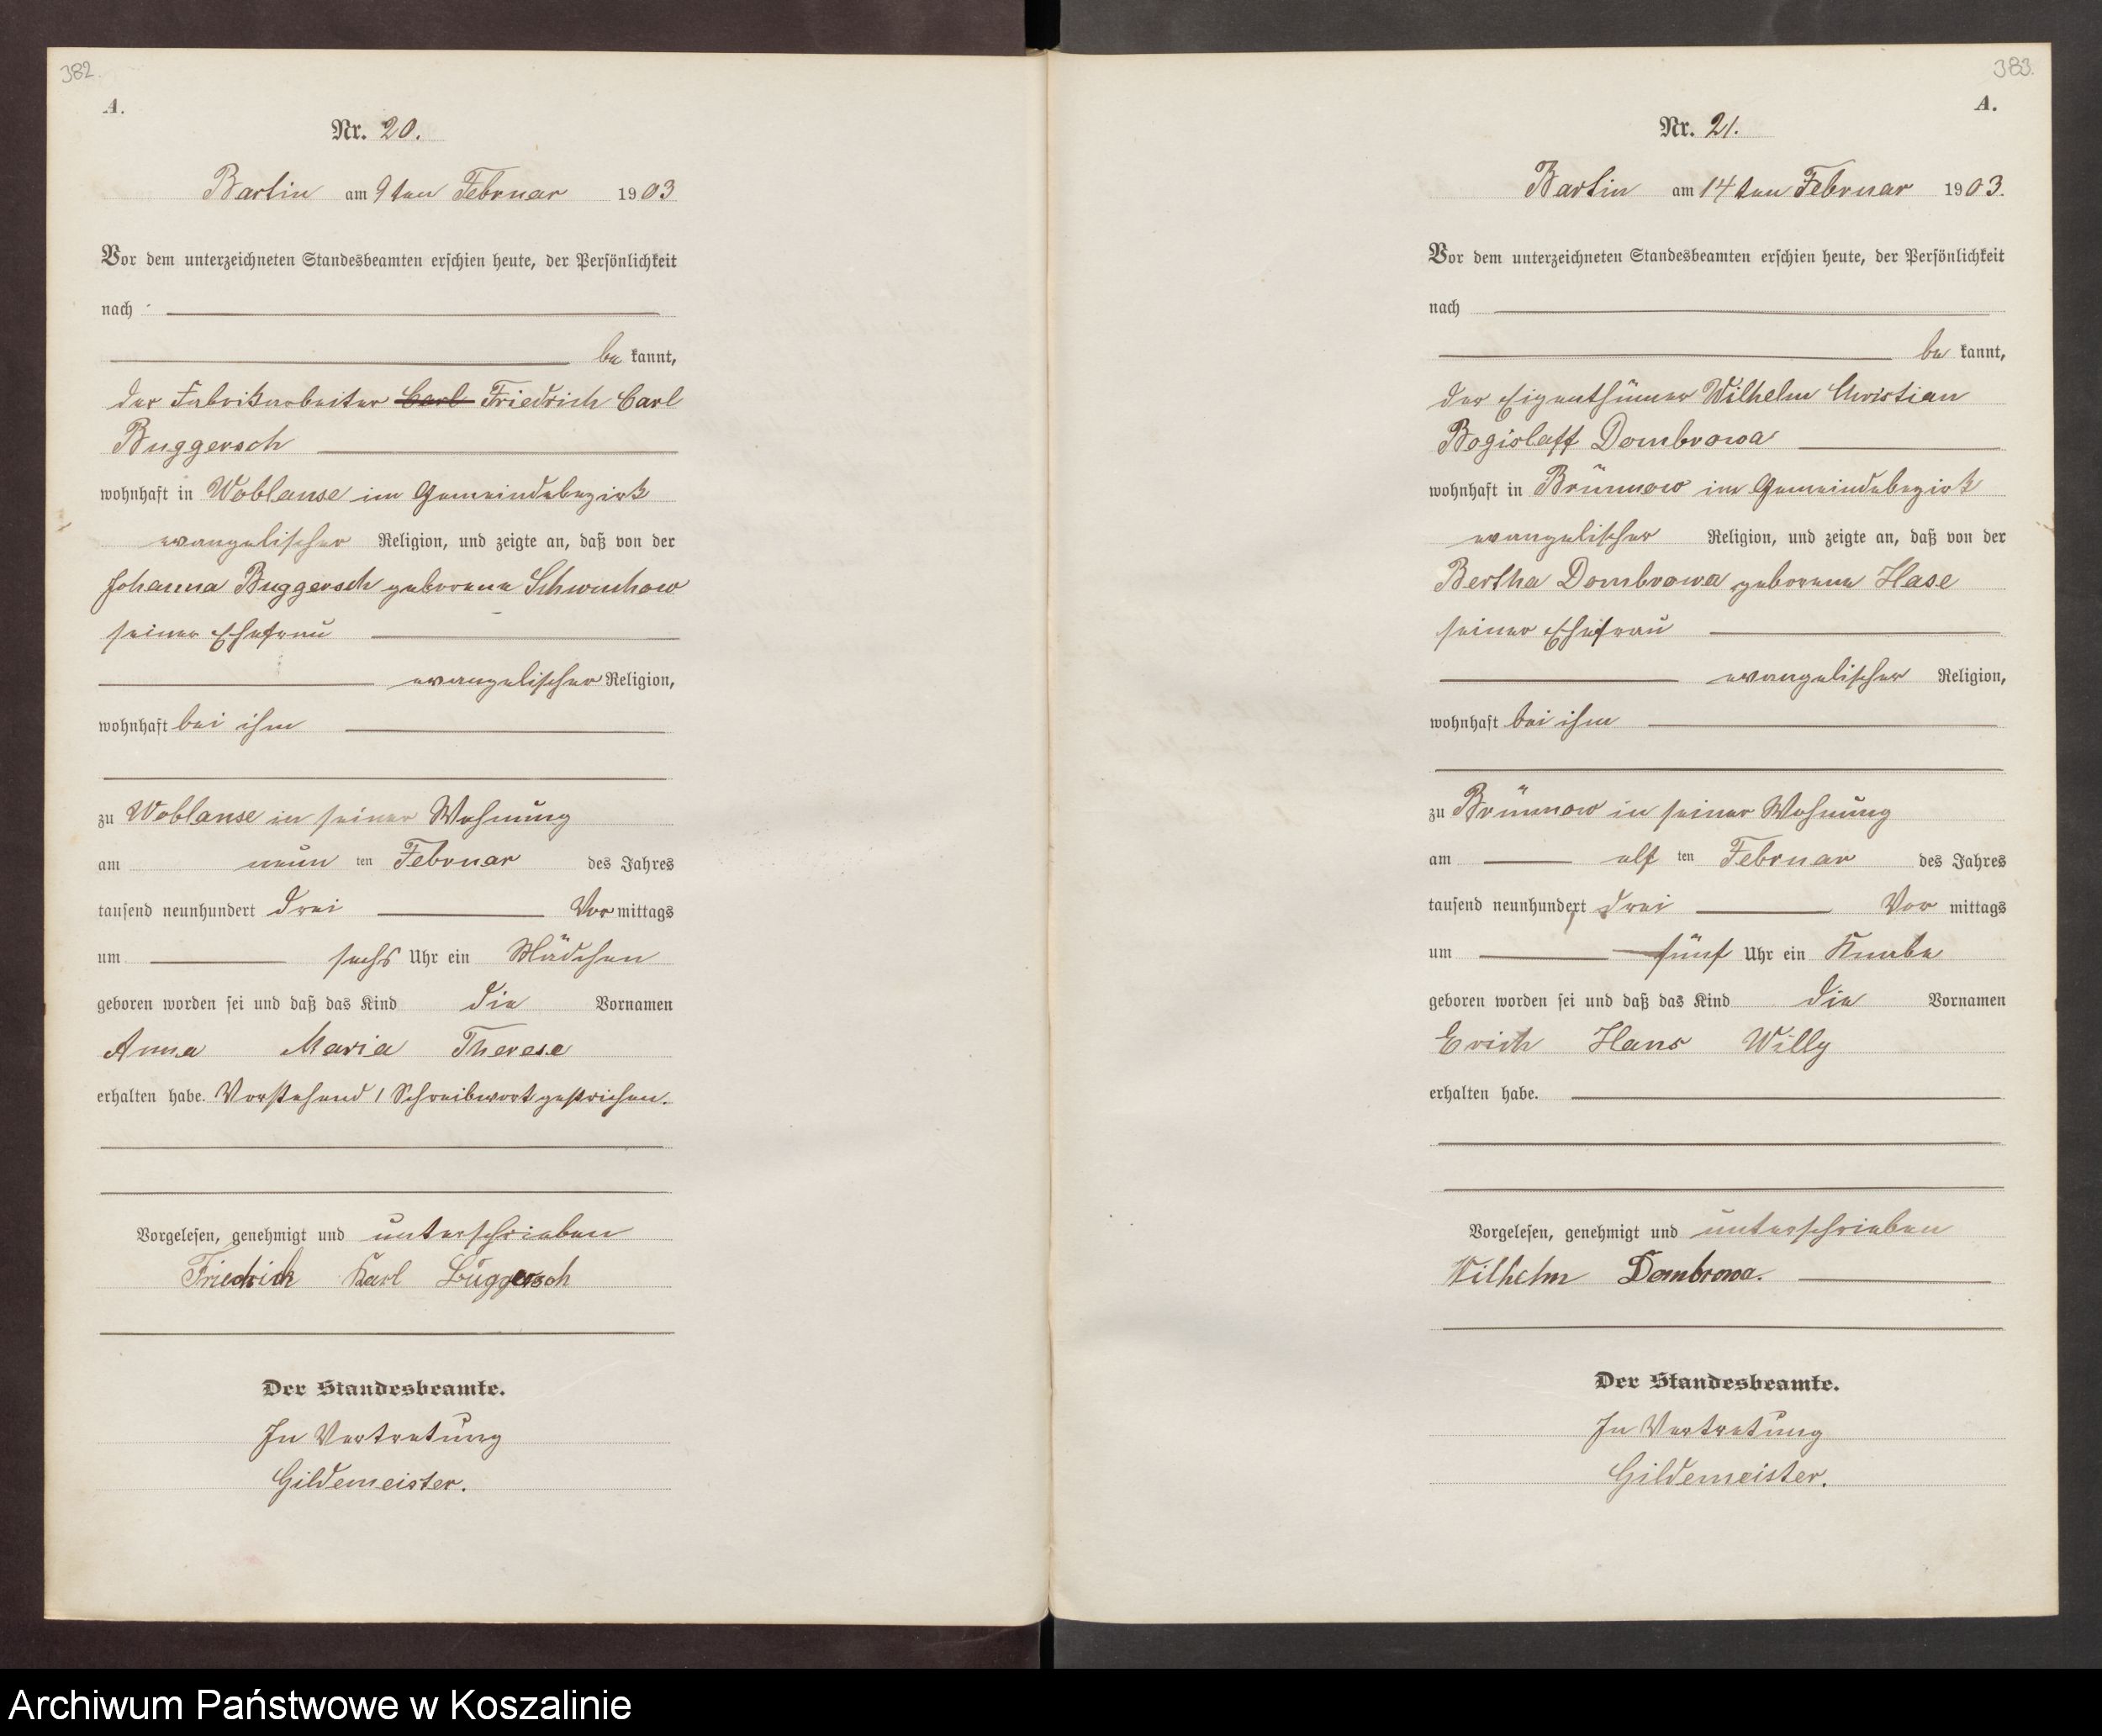 382.
A.
Nr. 20.
Bartin am 9ten Februar 1903
Vor dem unterzeichneten Standesbeamten erschien heute, der Persönlichkeit
nach
be kannt,
der Fabrikarbeiter Carl Friedrich Carl
Buggersch
wohnhaft in Woblanse im Gemeindebezirk
evangelischer Religion, und zeigte an, daß von der
Johanna Buggersch geborene Schwuchow
seiner Ehefrau
evangelischer Religion,
wohnhaft bei ihm
zu Woblanse in seiner Wohnung
am neun ten Februar des Jahres
tausend neunhundert drei Vor mittags
um sechs Uhr ein Mädchen
geboren worden sei und daß das Kind die Vornamen
Anna Maria Therese
erhalten habe. Vorstehend 1 Schreibwort gestrichen.
Vorgelesen, genehmigt und unterschrieben
Friedrich Karl Buggersch
Der Standesbeamte.
In Vertretung
Gildemeister.
383.
A.
Nr. 21.
Bartin am 14ten Februar 1903.
Vor dem unterzeichneten Standesbeamten erschien heute, der Persönlichkeit
nach
be kannt,
der Eigenthümer Wilhelm Christian
Bogislaff Dombrowa
wohnhaft in Brünnow im Gemeindebezirk
evangelischer Religion, und zeigte an, daß von der
Bertha Dombrowa geborene Hase
seiner Ehefrau
evangelischer Religion,
wohnhaft bei ihm
zu Brünnow in seiner Wohnung
am elf ten Februar des Jahres
tausend neunhundert drei Vor mittags
um fünf Uhr ein Knabe
geboren worden sei und daß das Kind die Vornamen
Erich Hans Willy
erhalten habe.
Vorgelesen, genehmigt und unterschrieben
Wilhelm Dombrowa.
Der Standesbeamte.
In Vertretung
Gildemeister.
Archiwum Państwowe w Koszalinie